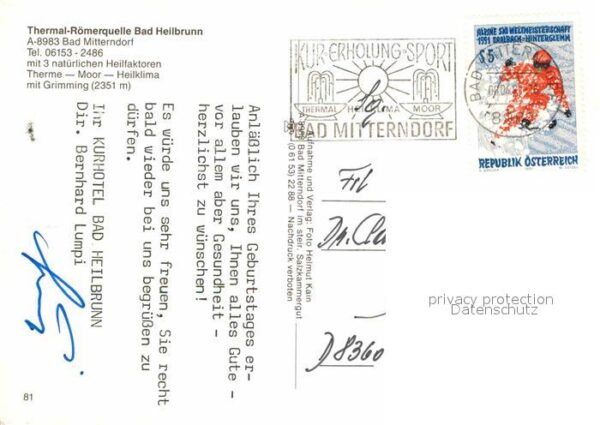 Thermal-Römerquelle Bad Heilbrunn
A-8983 Bad Mitterndorf
Tel. 06153 - 2486
mit 3 natürlichen Heilfaktoren
Therme — Moor — Heilklima
mit Grimming (2351 m)
Anläßlich Ihres Geburtstages er-
lauben wir uns, Ihnen alles Gute -
vor allem aber Gesundheit -
herzlichst zu wünschen!
Es würde uns sehr freuen, Sie recht
bald wieder bei uns begrüßen zu
dürfen.
Ihr KURHOTEL BAD HEILBRUNN
Dir. Bernhard Lumpi
81
Aufnahme und Verlag: Foto Helmut Kain
Bad Mitterndorf im steir. Salzkammergut
(0 61 53) 22 88 — Nachdruck verboten
KUR·ERHOLUNG·SPORT
THERMAL HEILKLIMA MOOR
BAD MITTERNDORF
ALPINE SKI WELTMEISTERSCHAFT
1991 SAALBACH-HINTERGLEMM
S5
BAD MITTERNDORF
REPUBLIK ÖSTERREICH
D 8360
privacy protection
Datenschutz